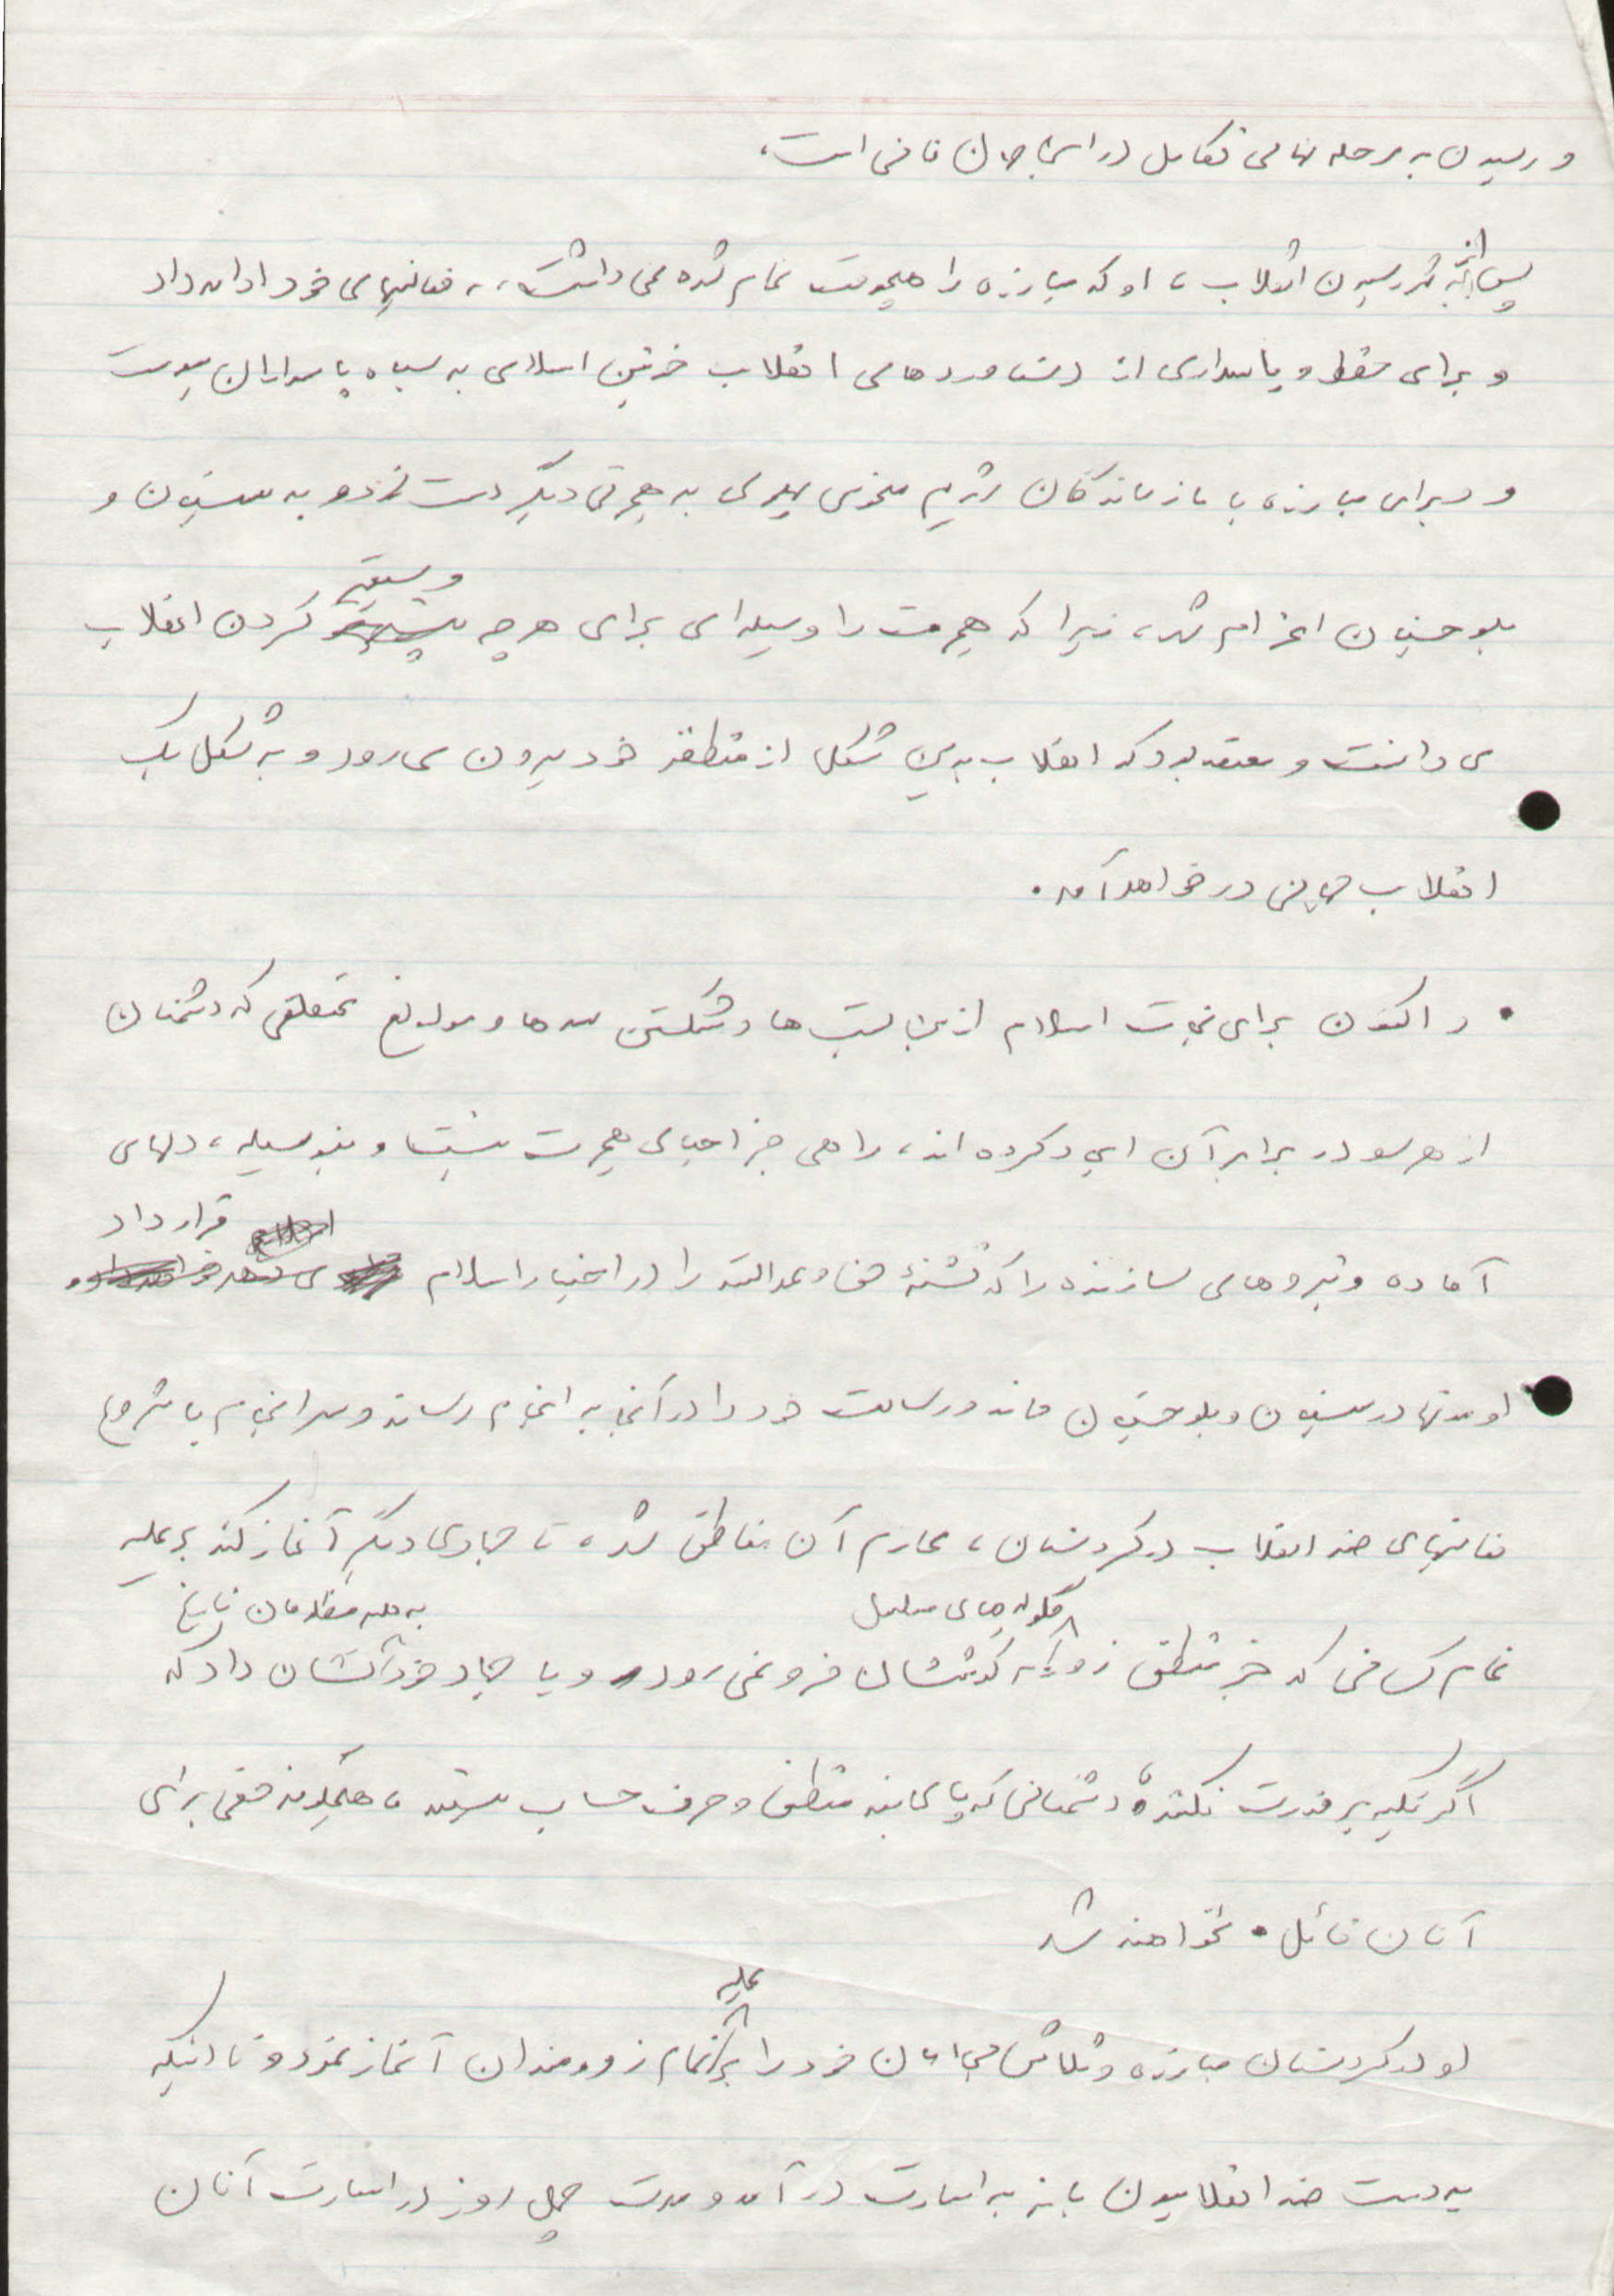 و رسیدن به مرحله نهائی تکامل در این جهان فانی است،
پس از به ثمر رسیدن انقلاب، او که مبارزه را هیچوقت تمام شده نمی دانست، به فعالیتهای خود ادامه داد
و برای حفظ و پاسداری از دستاوردهای انقلاب خونین اسلامی به سپاه پاسداران پیوست
و برای مبارزه با بازماندگان رژیم منحوس پهلوی به هجرتی دیگر دست زد و به سیستان و
بلوچستان اعزام شد، زیرا که هجرت را وسیله ای برای هر چه وسیعتر کردن انقلاب
می دانست و معتقد بود که انقلاب بدین شکل از منطقه خود بیرون می رود و به شکل یک
انقلاب جهانی در خواهد آمد.
• و اکنون برای نجات اسلام از بن بست ها و شکستن سدها و موانع مختلفی که دشمنان
از هر سو در برابر آن ایجاد کرده اند، راهی جز احیای هجرت نیست و بدینوسیله، دلهای
آماده و نیروهای سازنده را که تشنهٔ حق و عدالتند را در اختیار اسلام قرار داد
او مدتها در سیستان و بلوچستان ماند و رسالت خود را در آنجا به انجام رساند و سرانجام با شروع
فعالیتهای ضد انقلاب در کردستان، عازم آن مناطق شد، تا جهادی دیگر آغاز کند بر علیه
تمام کسانی که جز منطق زور و گلوله های مسلسل به گوششان فرو نمی رود و با جهاد خود به همه منظلمان تاریخ نشان داد که
اگر تکیه بر قدرت نکنند، دشمنانی که پای بند منطق و حرف حساب نیستند، هیچگونه حقی برای
آنان قائل نخواهند شد
او در کردستان مبارزه و تلاش بی امان خود را بر علیه تمام زورمندان آغاز نمود و تا اینکه
به دست ضد انقلابیون بانه به اسارت در آمد و مدت چهل روز در اسارت آنان